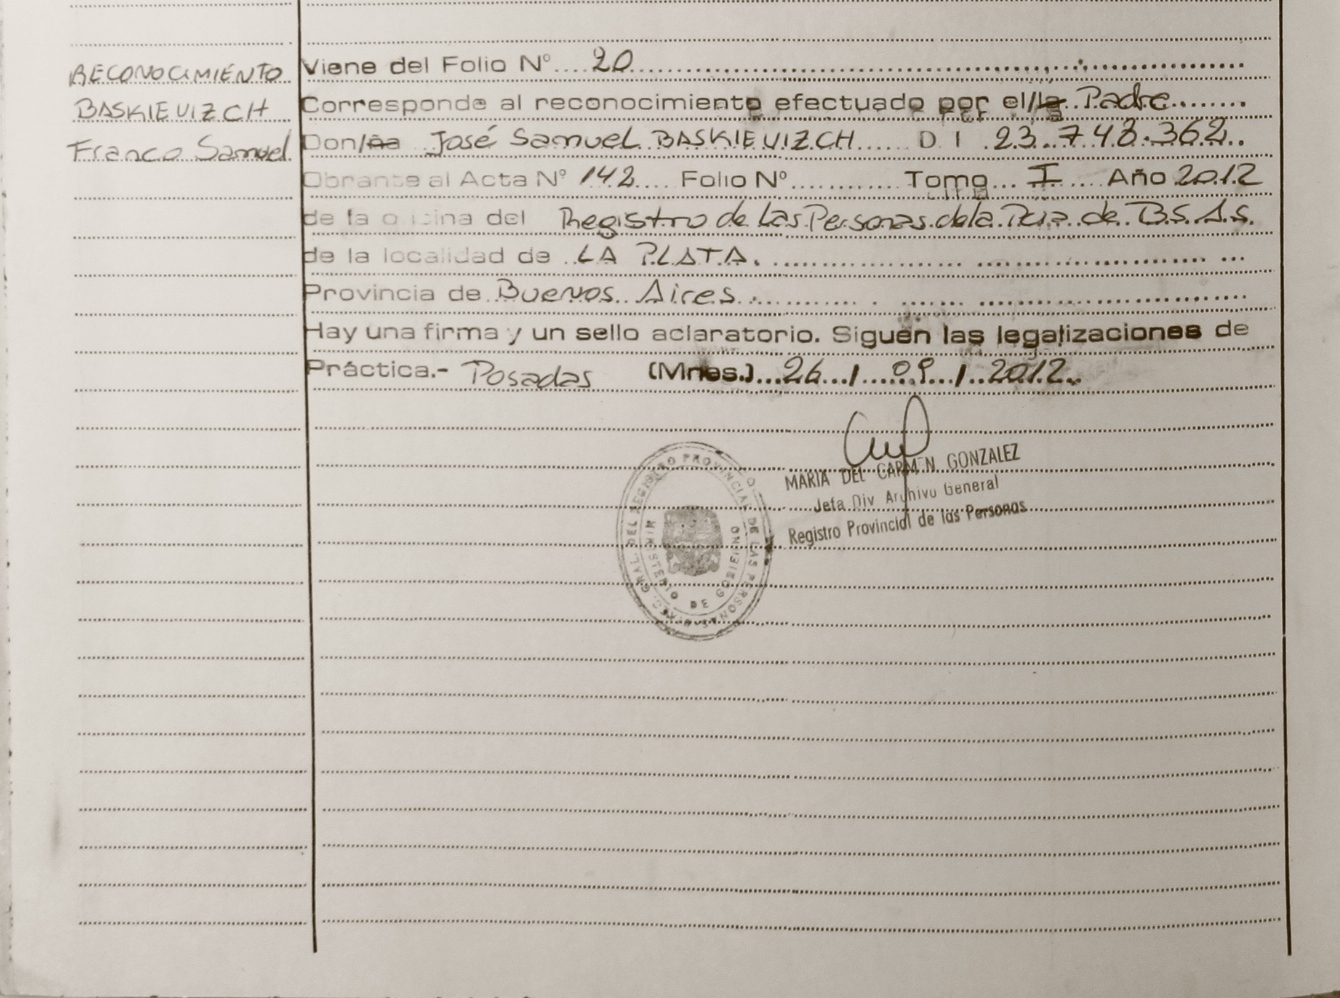 RECONOCIMIENTO
BASKIEVIZCH
Franco Samuel
Viene del Folio N° 20
Corresponde al reconocimiento efectuado por el/la Padre
Don/ña José Samuel BASKIEVIZCH D I 23.748.362
Obrante al Acta N° 142 Folio N° Tomo I Año 2012
de la oficina del Registro de Las Personas de la Pcia. de B.S.A.S.
de la localidad de LA PLATA.
Provincia de Buenos Aires
Hay una firma y un sello aclaratorio. Siguen las legalizaciones de
Práctica.- Posadas (Mnes.) 26 / 09 / 2012
MARIA DEL CARMEN GONZALEZ
Jefa Div Archivo General
Registro Provincial de las Personas
REG. GRAL. DEL REGISTRO PROVINCIAL DE LAS PERSONAS
MINISTERIO DE GOBIERNO